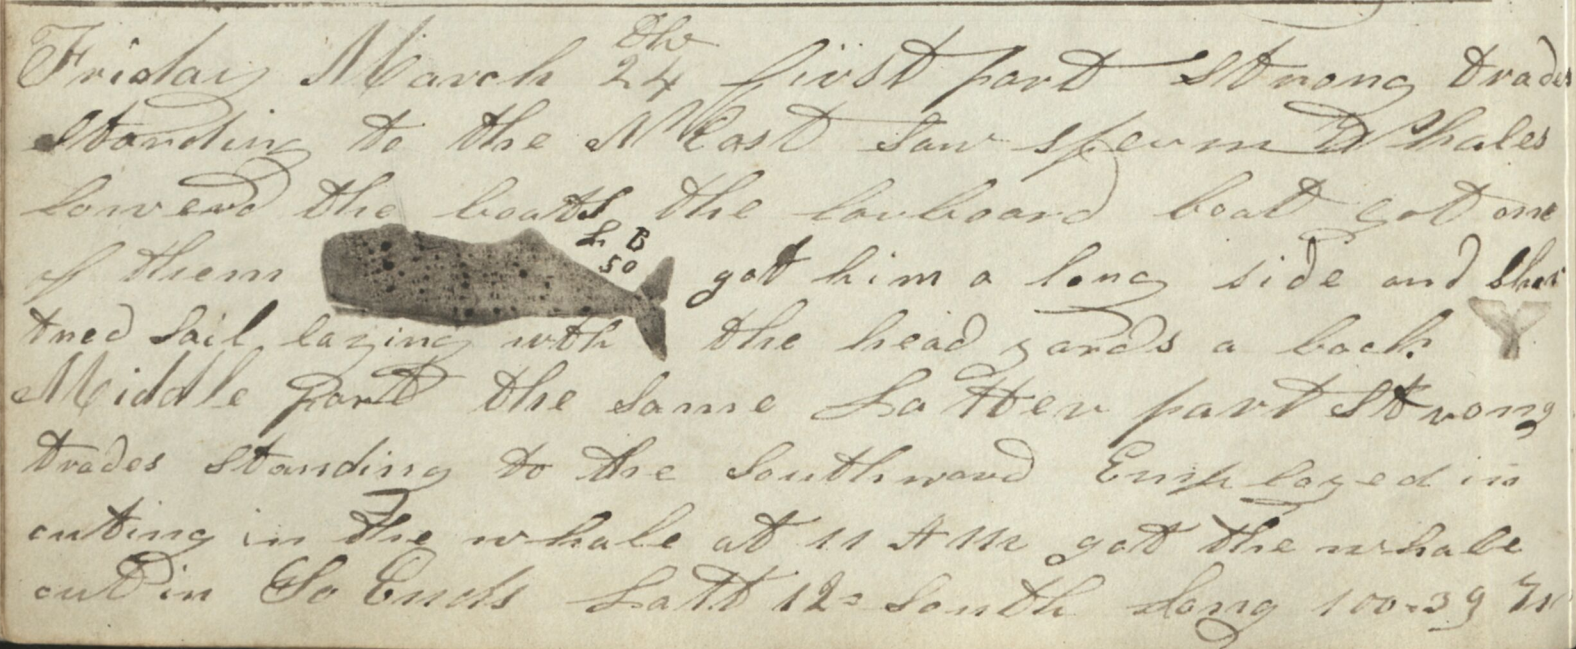 Friday March 24 the first part Strong trades
Standing to the N East Saw sperm Whales
lowerd the boats the larboard boat got one
of them L B 50 got him a long side and shor
tned Sail laying with the head yards a back
Middle Part the Same Latter part Strong
trades Standing to the Southward Employed in
cuting in the whale at 11 AM got the whale
cut in So Ends Latt 12= South Long 100=39